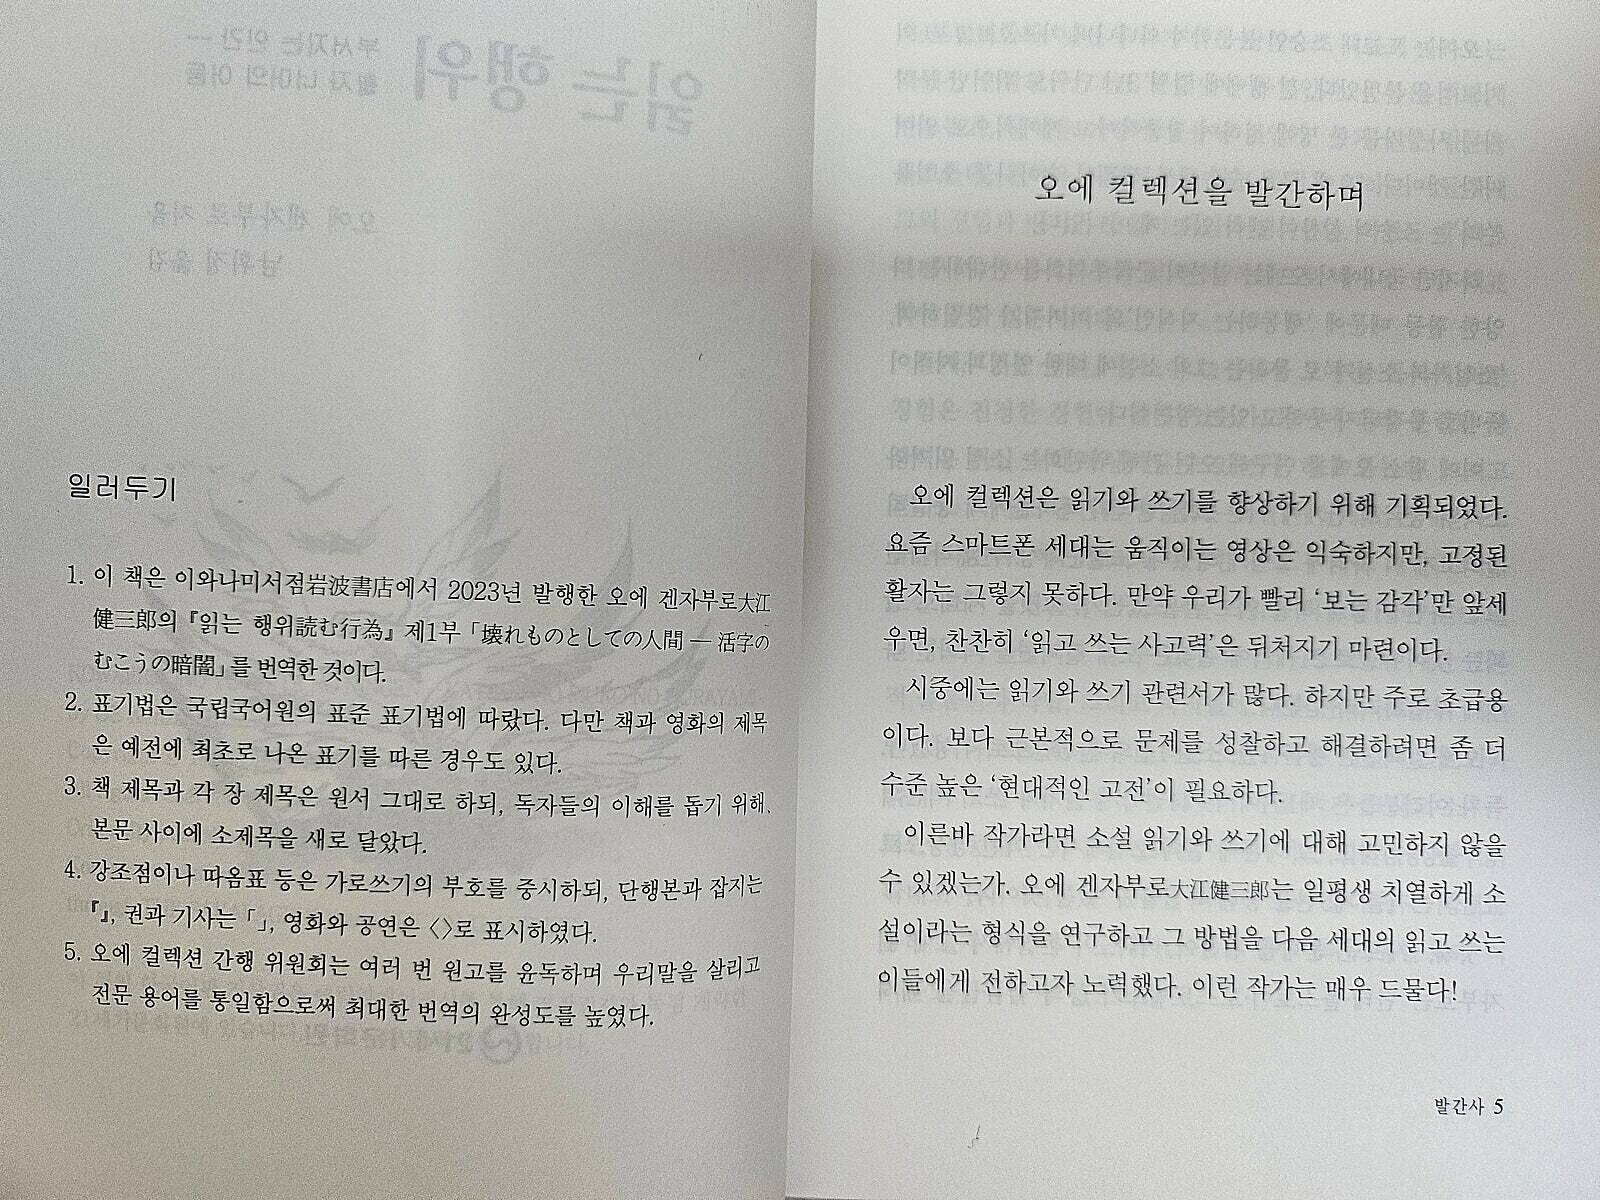 일러두기
1. 이 책은 이와나미서점岩波書店에서 2023년 발행한 오에 겐자부로大江
健三郎의 『읽는 행위読む行為』 제1부 「壊れものとしての人間 ― 活字の
むこうの暗闇」를 번역한 것이다.
2. 표기법은 국립국어원의 표준 표기법에 따랐다. 다만 책과 영화의 제목
은 예전에 최초로 나온 표기를 따른 경우도 있다.
3. 책 제목과 각 장 제목은 원서 그대로 하되, 독자들의 이해를 돕기 위해,
본문 사이에 소제목을 새로 달았다.
4. 강조점이나 따옴표 등은 가로쓰기의 부호를 중시하되, 단행본과 잡지는
『』, 권과 기사는 「」, 영화와 공연은 〈〉로 표시하였다.
5. 오에 컬렉션 간행 위원회는 여러 번 원고를 윤독하며 우리말을 살리고
전문 용어를 통일함으로써 최대한 번역의 완성도를 높였다.
오에 컬렉션을 발간하며
오에 컬렉션은 읽기와 쓰기를 향상하기 위해 기획되었다.
요즘 스마트폰 세대는 움직이는 영상은 익숙하지만, 고정된
활자는 그렇지 못하다. 만약 우리가 빨리 ‘보는 감각’만 앞세
우면, 찬찬히 ‘읽고 쓰는 사고력’은 뒤처지기 마련이다.
시중에는 읽기와 쓰기 관련서가 많다. 하지만 주로 초급용
이다. 보다 근본적으로 문제를 성찰하고 해결하려면 좀 더
수준 높은 ‘현대적인 고전’이 필요하다.
이른바 작가라면 소설 읽기와 쓰기에 대해 고민하지 않을
수 있겠는가. 오에 겐자부로大江健三郎는 일평생 치열하게 소
설이라는 형식을 연구하고 그 방법을 다음 세대의 읽고 쓰는
이들에게 전하고자 노력했다. 이런 작가는 매우 드물다!
발간사 5